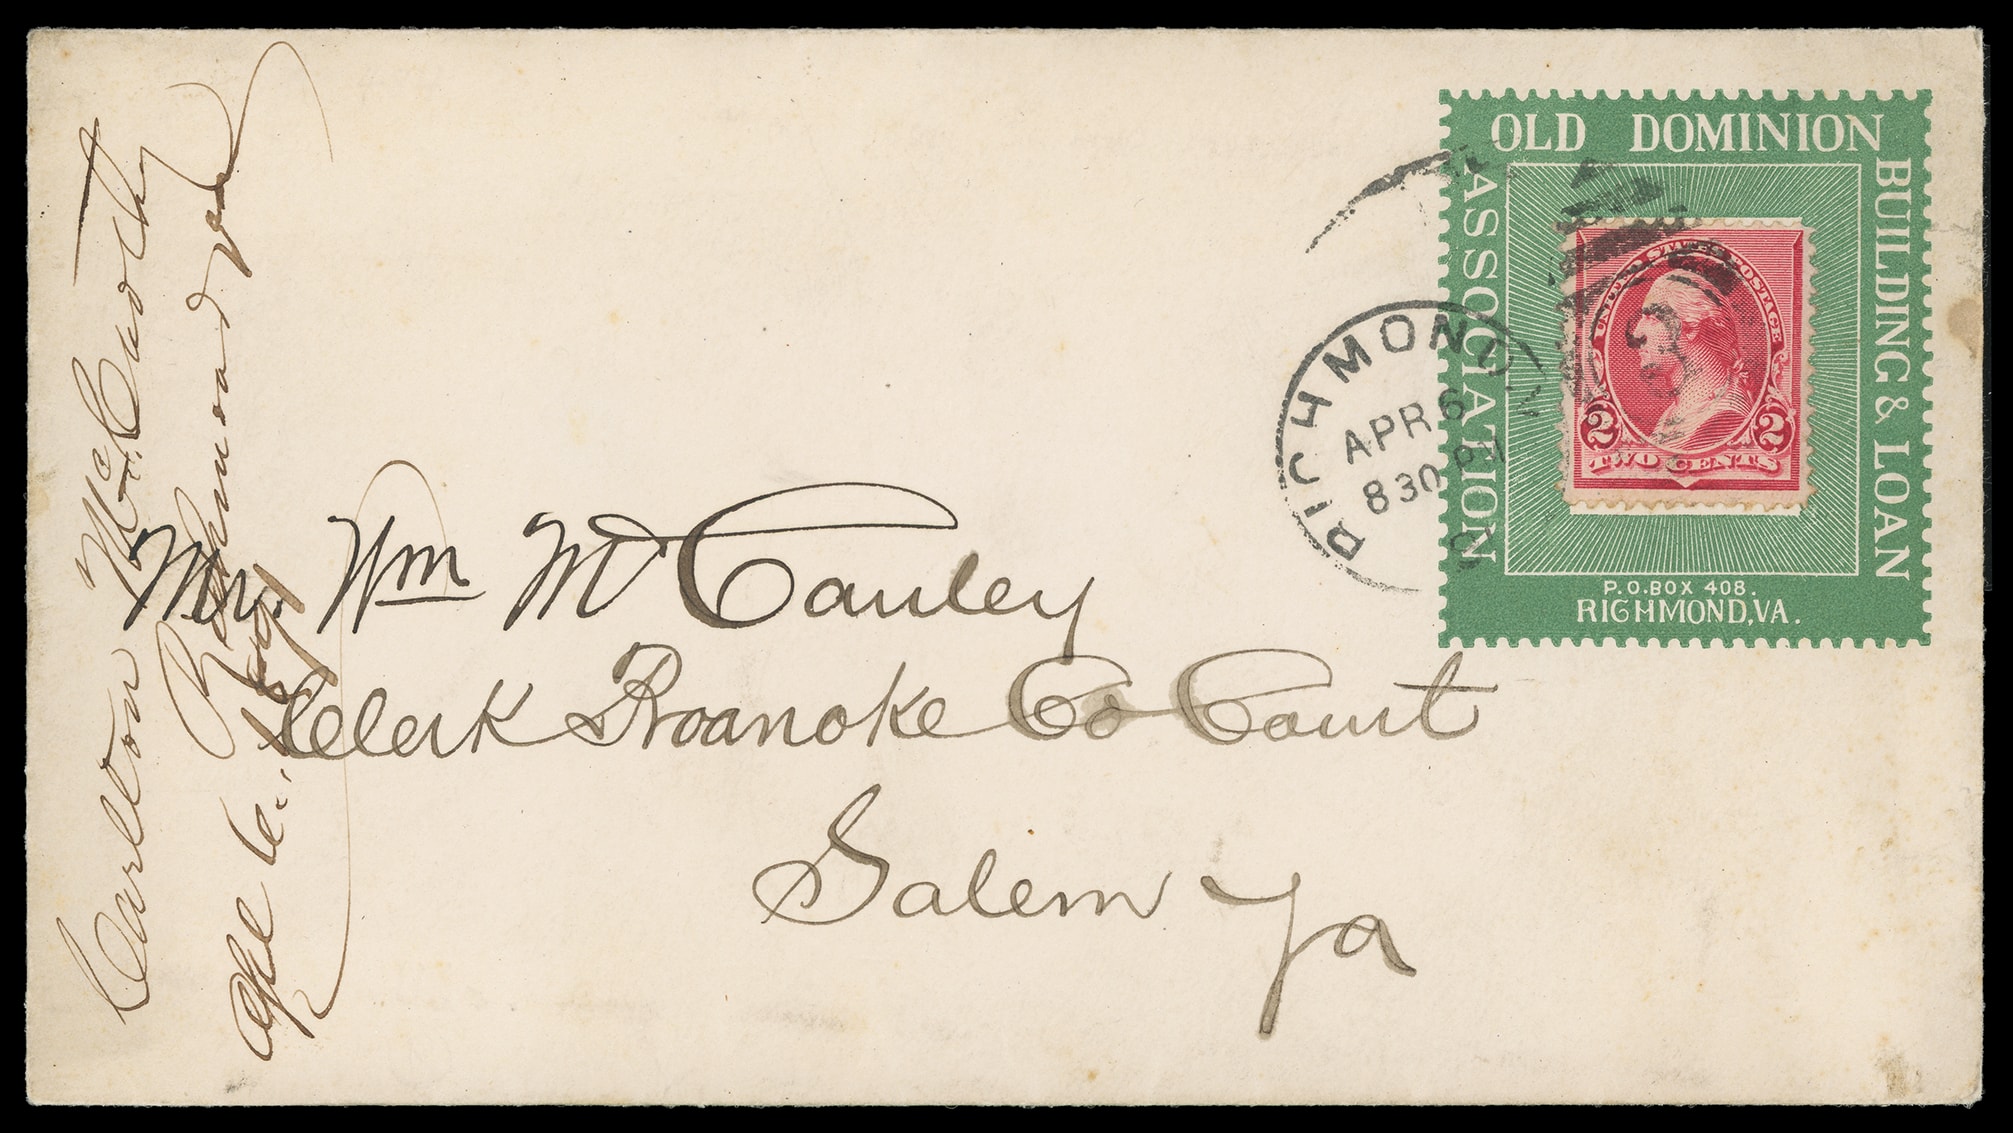 OLD DOMINION
BUILDING & LOAN
ASSOCIATION
P.O.BOX 408.
RICHMOND, VA.
UNITED STATES POSTAGE
2 2
TWO CENTS
3
RICHMOND
APR 6
8 30 PM
Mr. Wm McCauley
Clerk Roanoke Co Court
Salem Va
Carlton McCarthy
Richmond
1891